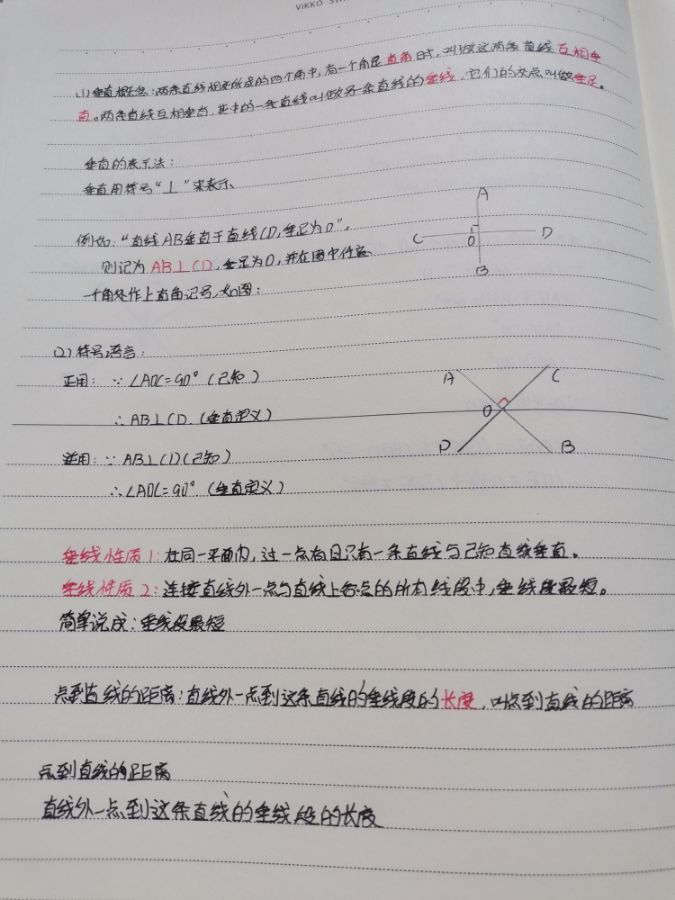 VIKKO
(1)垂直概念:两条直线相交所成的四个角中,有一个角是直角时,叫做这两条直线互相垂
直。两条直线互相垂直,其中的一条直线叫做另一条直线的垂线,它们的交点叫做垂足。
垂直的表示法:
垂直用符号“⊥”来表示
例如:“直线AB垂直于直线CD,垂足为O”,
则记为AB⊥CD,垂足为O,并在图中任意
一个角处作上直角记号,如图:
A
C O D
B
(2)符号语言:
正用:∵∠AOC=90°(已知)
∴AB⊥CD.(垂直定义)
逆用:∵AB⊥CD(已知)
∴∠AOC=90°(垂直定义)
A C
O
D B
垂线性质1:在同一平面内,过一点有且只有一条直线与已知直线垂直。
垂线性质2:连接直线外一点与直线上各点的所有线段中,垂线段最短。
简单说成:垂线段最短
点到直线的距离:直线外一点到这条直线的垂线段的长度,叫点到直线的距离
点到直线的距离
直线外一点到这条直线的垂线段的长度